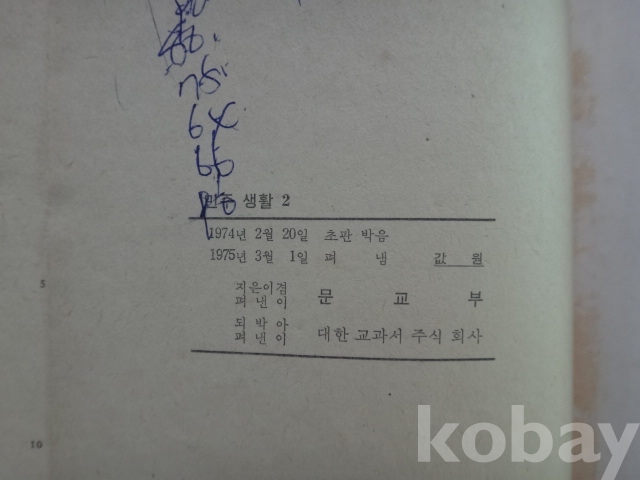 75.
64
66
민주 생활 2
1974년 2월 20일 초판 박음
1975년 3월 1일 펴 냄 값 원
지은이겸
펴낸이 문 교 부
되박아
펴낸이 대한 교과서 주식 회사
5
10
kobay